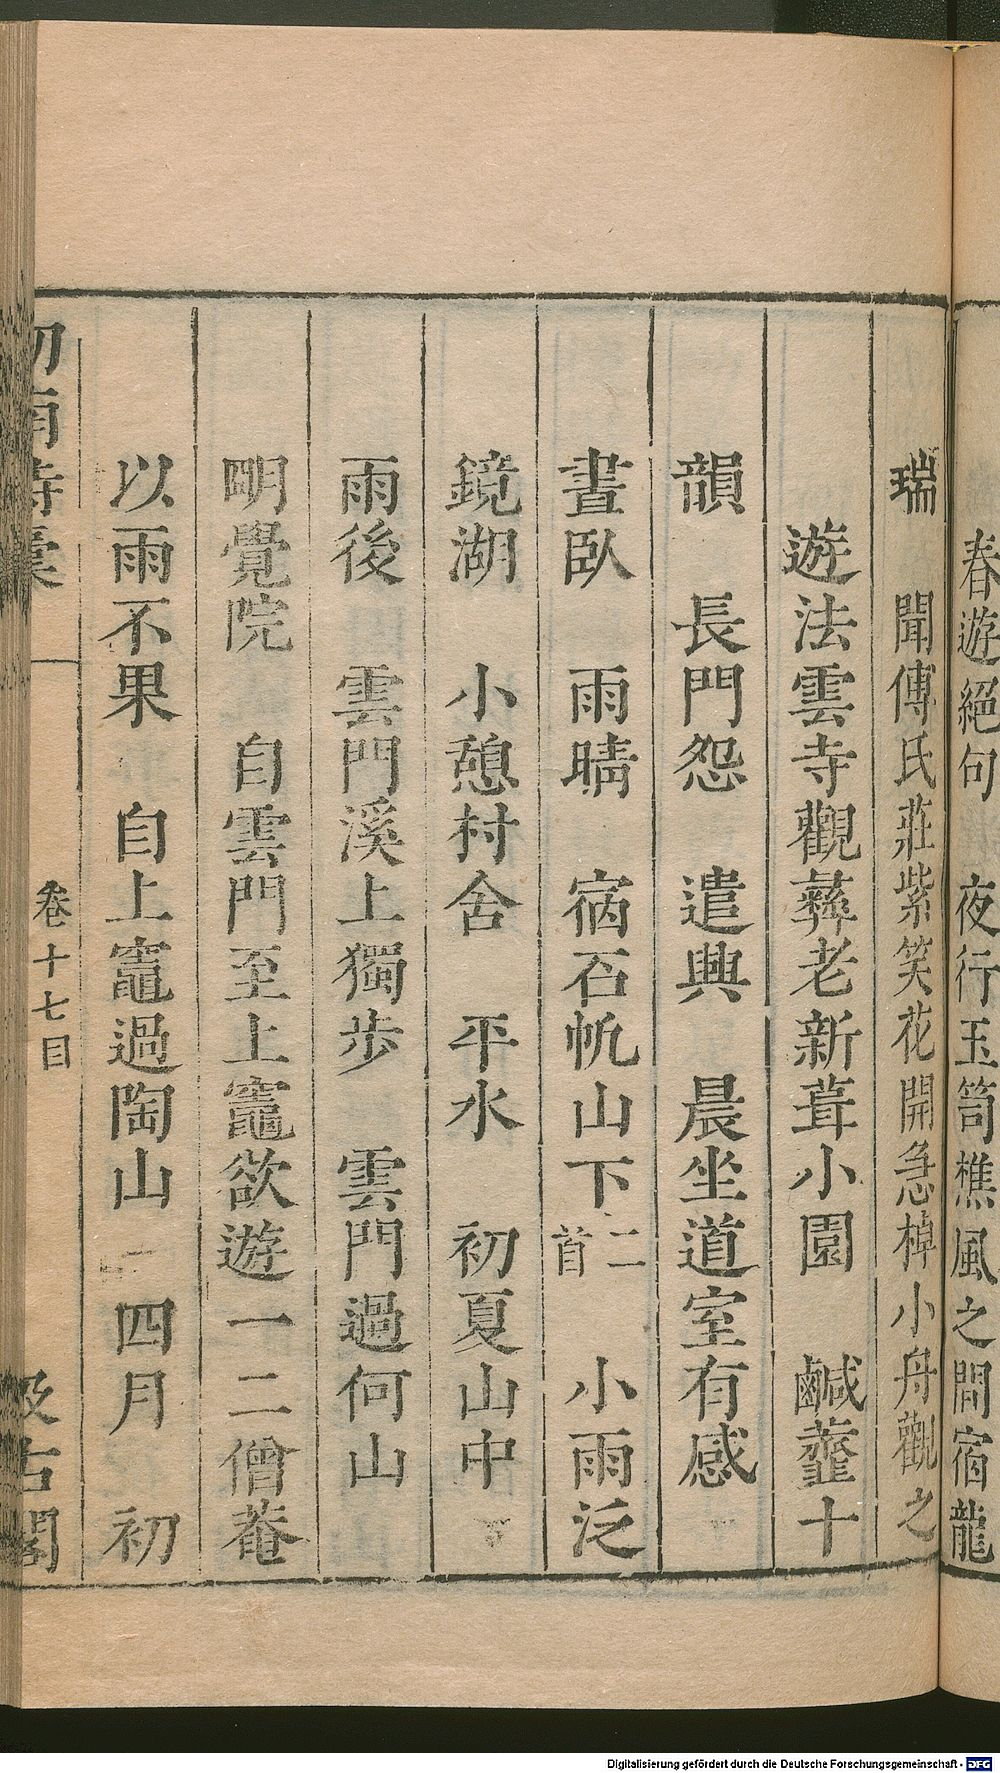 春遊絕句　夜行玉笥樵風之間宿龍
瑞　聞傅氏莊紫笑花開急棹小舟觀之
遊法雲寺觀彝老新葺小園　鹹虀十
韻　長門怨　遣興　晨坐道室有感
晝臥　雨晴　宿石帆山下二首　小雨泛
鏡湖　小憩村舍　平水　初夏山中
雨後　雲門溪上獨步　雲門過何山
明覺院　自雲門至上竈欲遊一二僧菴
以雨不果　自上竈過陶山　四月　初
劍南詩槀　卷十七目　汲古閣
Digitalisierung gefördert durch die Deutsche Forschungsgemeinschaft - DFG